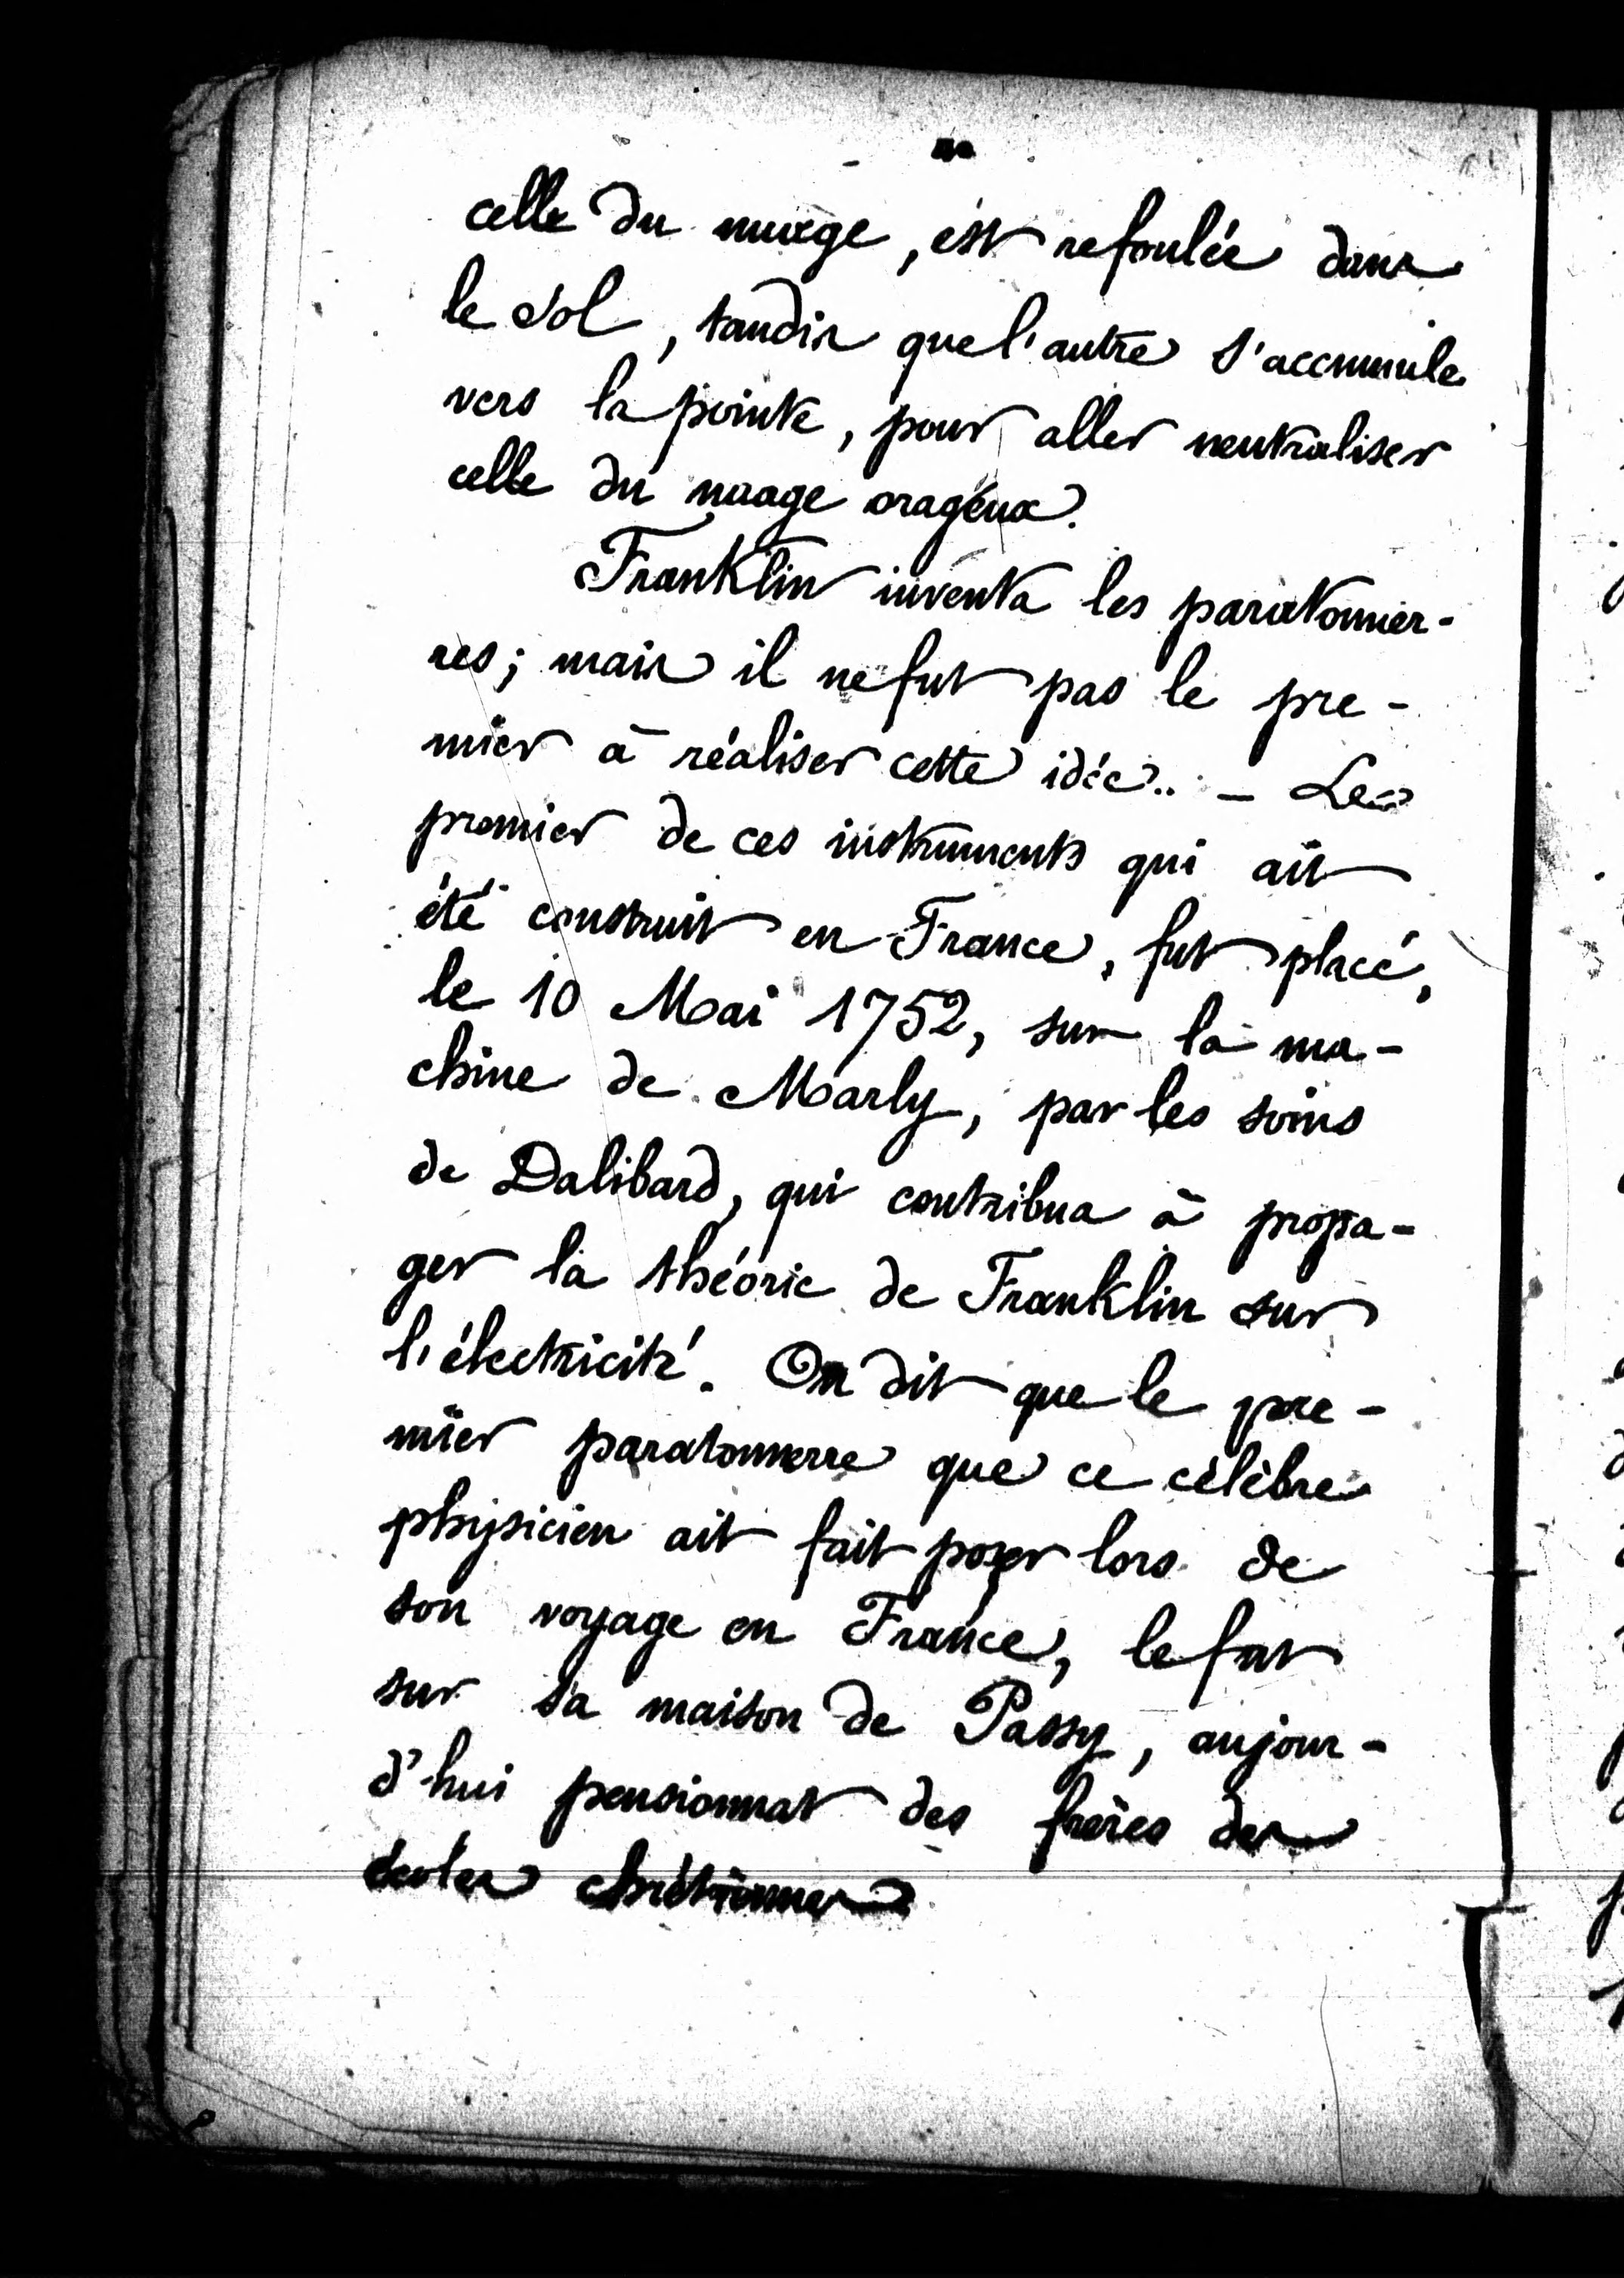 celle du nuage, est refoulée dans
le sol, tandis que l'autre s'accumule
vers la pointe, pour aller neutraliser
celle du nuage orageux.
Franklin inventa les paratonner-
res; mais il ne fut pas le pre-
mier à réaliser cette idée.. – Le
premier de ces instruments qui ait
été construit en France, fut placé,
le 10 Mai 1752, sur la ma-
chine de Marly, par les soins
de Dalibard, qui contribua à propa-
ger la théorie de Franklin sur
l'électricité. On dit que le pre-
mier paratonnerre que ce célèbre
physicien ait fait poser lors de
son voyage en France, le fut
sur sa maison de Passy, aujour-
d'hui pensionnat des frères des
écoles chrétiennes